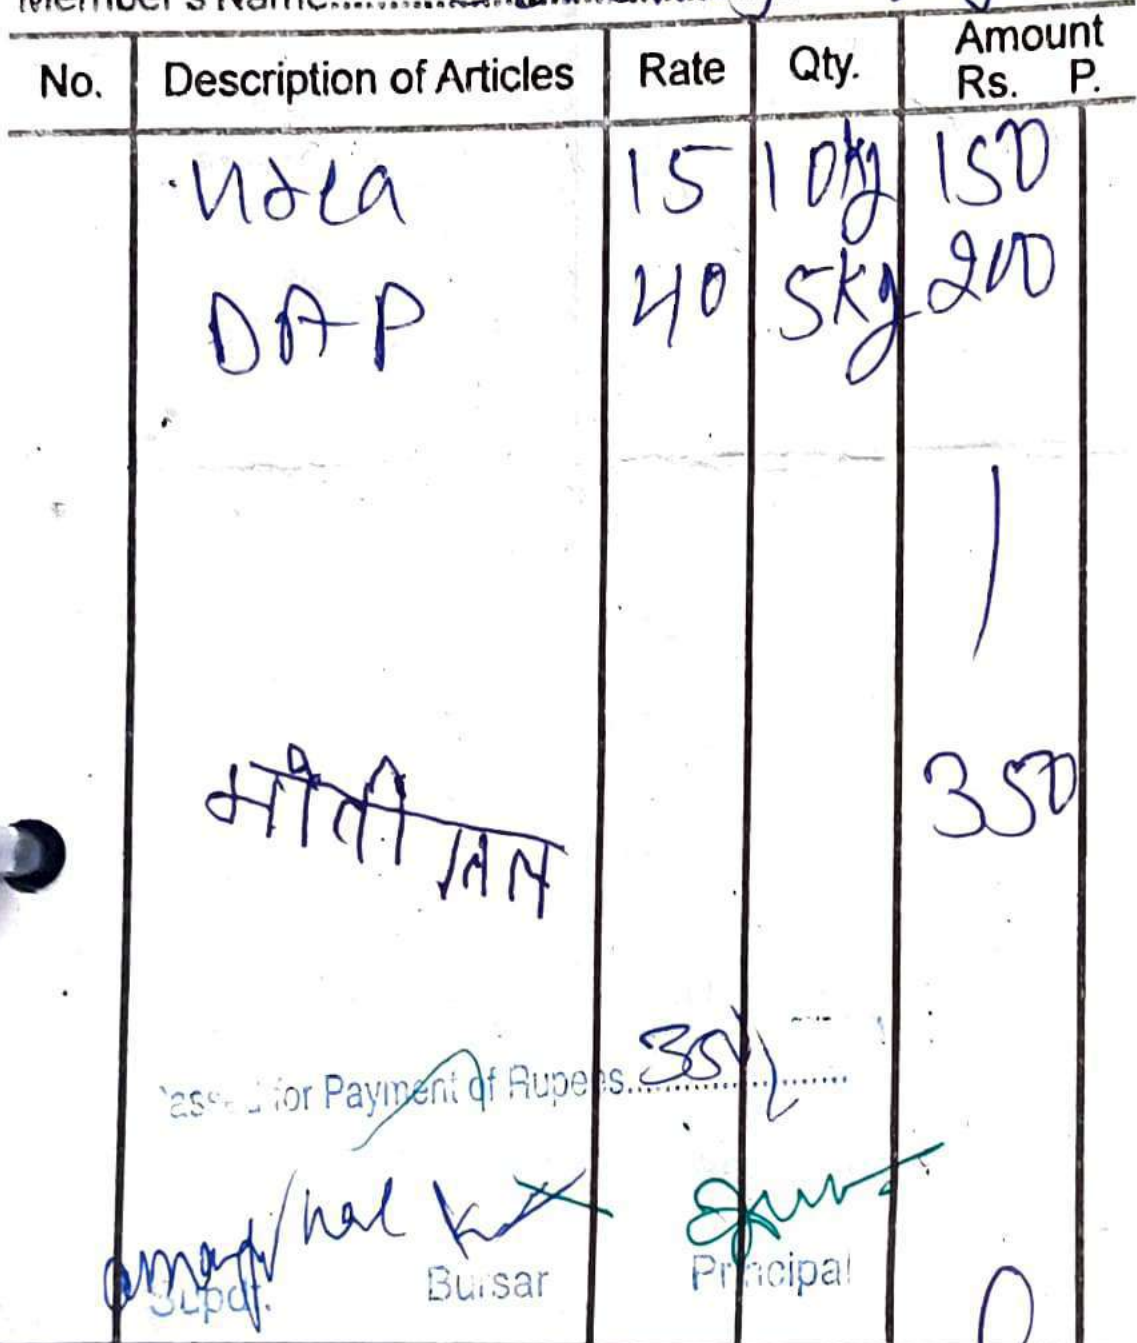 Member's Name
No. Description of Articles Rate Qty. Amount Rs. P.
Urea 15 10kg 150
DAP 40 5kg 200
350
मोती
for Payment of Rupees 350/
Supdt. Bursar Principal